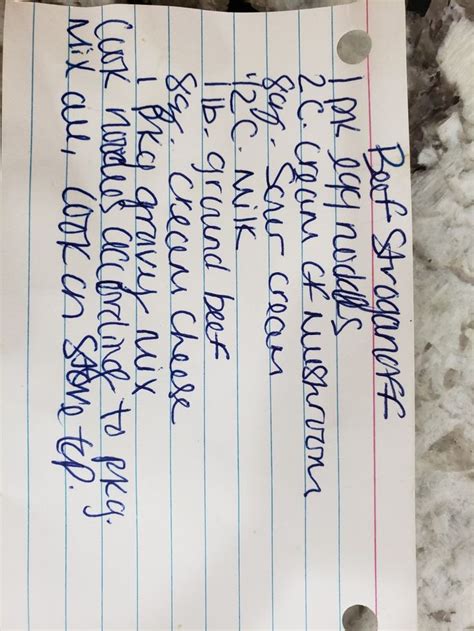 Beef Stroganoff
1 pk egg noddls
2 C. cream of mushroom
8oz. Sour cream
1/2 C. milk
1 lb. ground beef
8oz. cream cheese
1 pkg gravy mix
Cook noodles according to pkg.
Mix all, Cook on stove top.